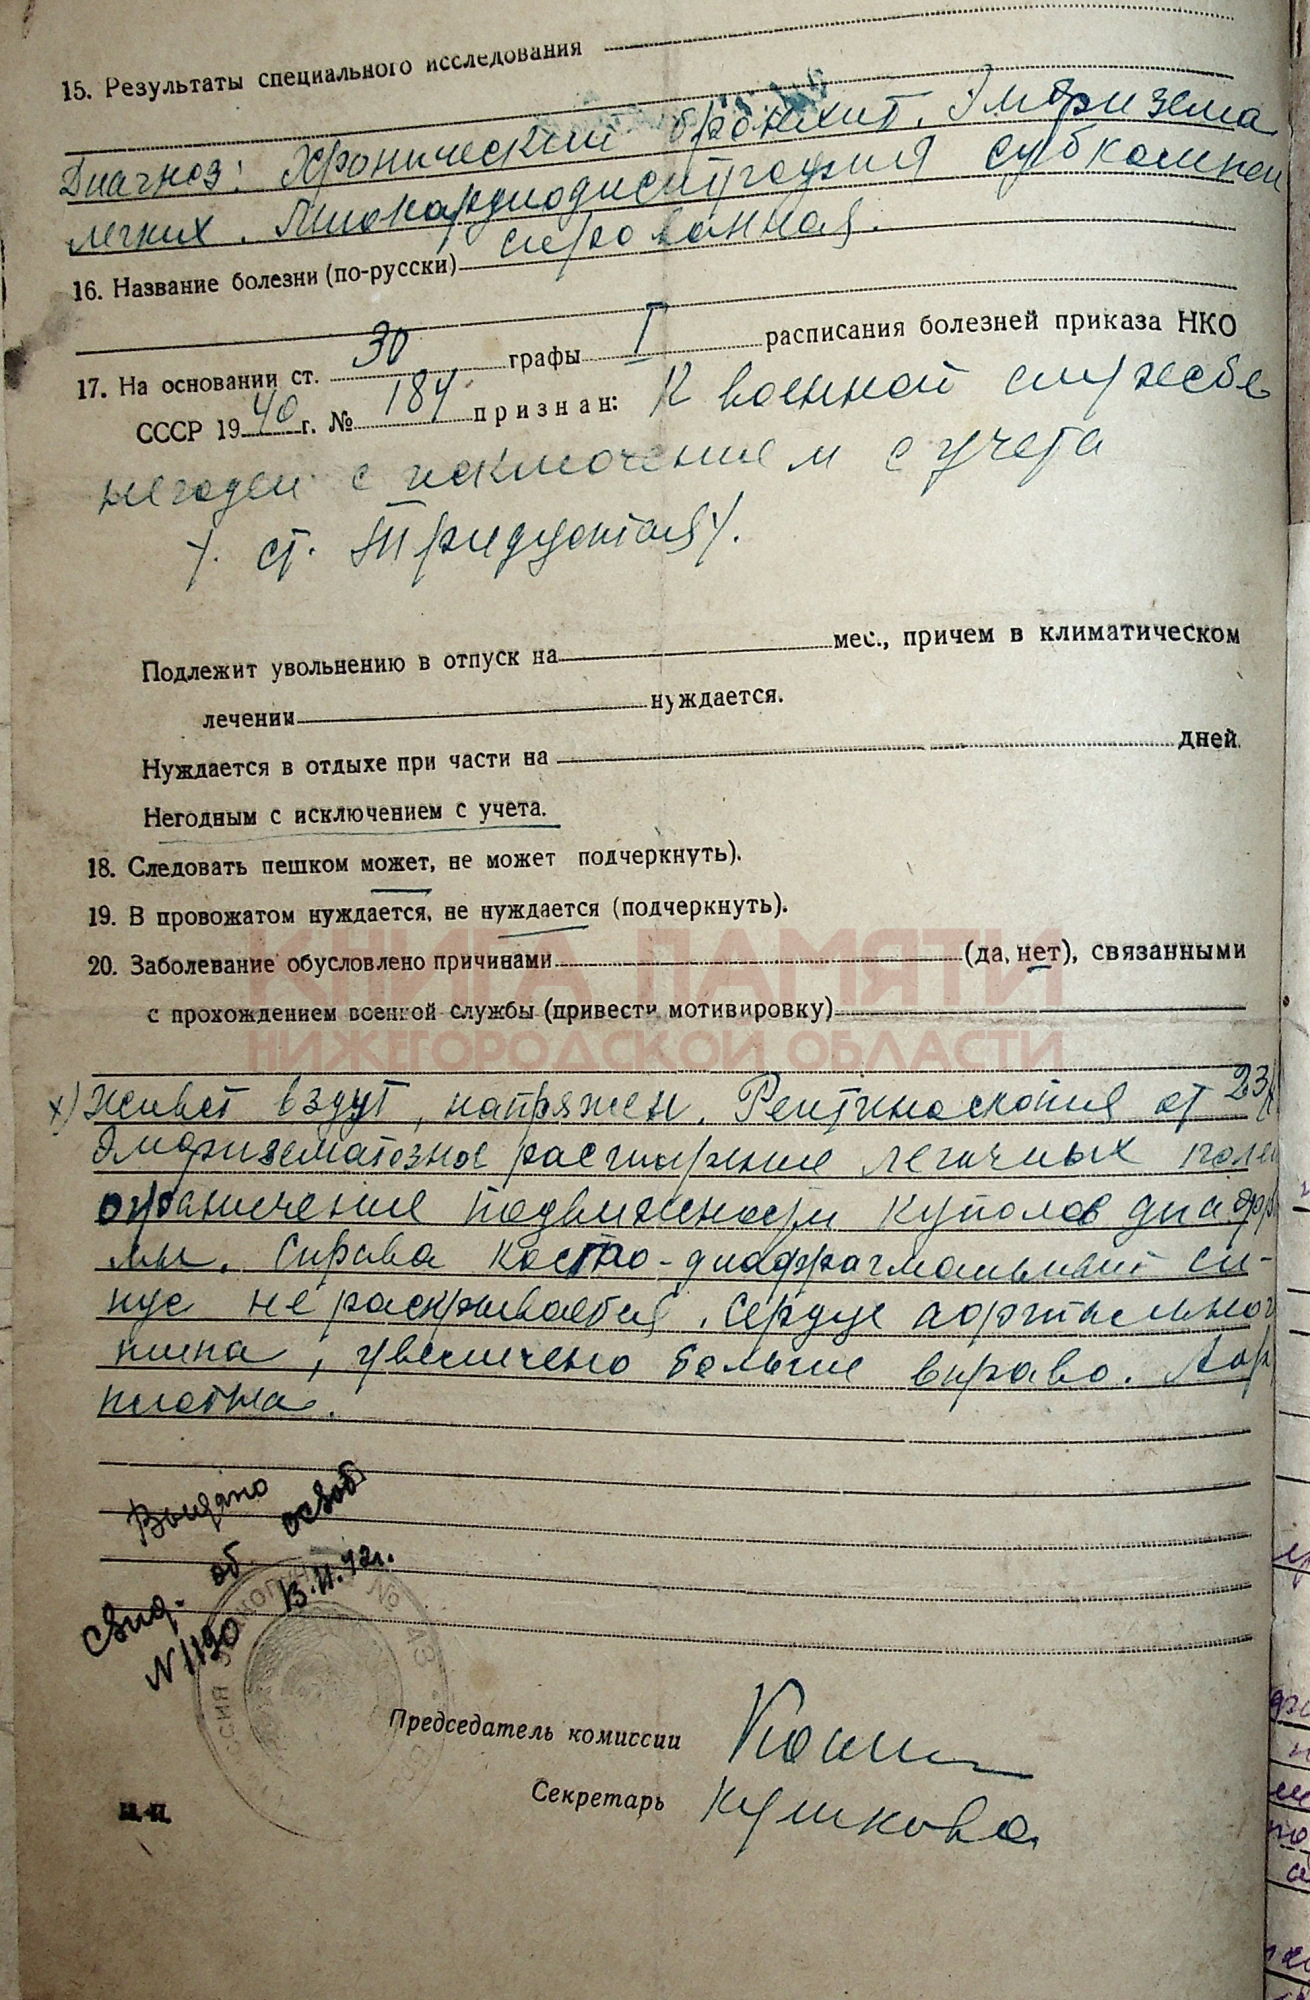 15. Результаты специального исследования
Диагноз: Хронический бронхит. Эмфизема
легких. Миокардиодистрофия субкомпен
сированная.
16. Название болезни (по-русски)
17. На основании ст. 30 графы I расписания болезней приказа НКО
СССР 1940 г. № 184 признан: К военной службе
негоден с исключением с учета
/. ст. Тридцатая/.
Подлежит увольнению в отпуск на мес., причем в климатическом
лечении нуждается.
Нуждается в отдыхе при части на дней.
Негодным с исключением с учета.
18. Следовать пешком может, не может подчеркнуть).
19. В провожатом нуждается, не нуждается (подчеркнуть).
КНИГА ПАМЯТИ
20. Заболевание обусловлено причинами (да, нет), связанными
с прохождением военной службы (привести мотивировку)
НИЖЕГОРОДСКОЙ ОБЛАСТИ
х) Живот вздут, напряжен. от 23/
Эмфизематозное расширение легочных полей
ограничение подвижности куполов диафраг
мы. Справа косто-диафрагмальный си-
нус не раскрывается. Сердце аортального
типа, увеличено больше вправо. Аор
плотна.
Выдано
свид. об освоб.
№ 1190 13.II.42г.
Председатель комиссии
Секретарь
м.п.